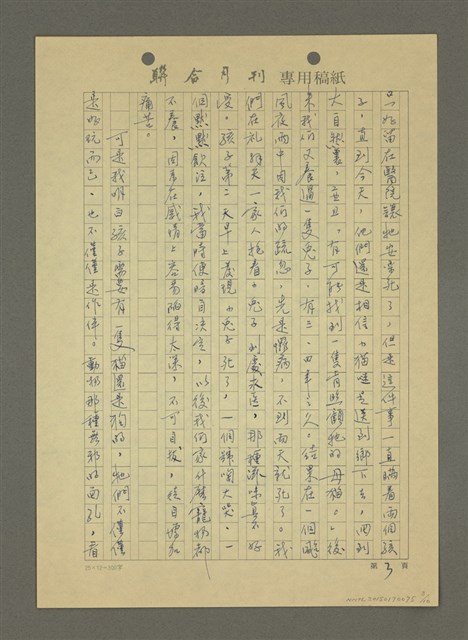 聯合月刊 專用稿紙
只好留在醫院讓牠安樂死了,但是這件事一直瞞着兩個孩
子,直到今天,他們還是相信小貓咪是送到鄉下去,回到
大自然裏,並且,有可能找到一隻肯照顧牠的母貓。後
來我們又養過一隻兔子,有三、四年之久,結果在一個颱
風夜雨中因我們的疏忽,先是懨病,不到兩天就死了。我
們在禮拜天一家人抱着小兔子到處求醫,那種滋味真不好
受。孩子第二天早上發現小兔子死了,一個號啕大哭,一
個默默飲泣,我當時便暗自決定,以後我們家什麼寵物都
不養,因為在感情上容易陷得太深,不可自拔,徒自增加
痛苦。
可是我明白孩子需要有一隻貓或是狗的,牠們不僅僅
是好玩而已,也不僅僅是作伴。動物那種無邪的面孔,看
第3頁
25×12=300